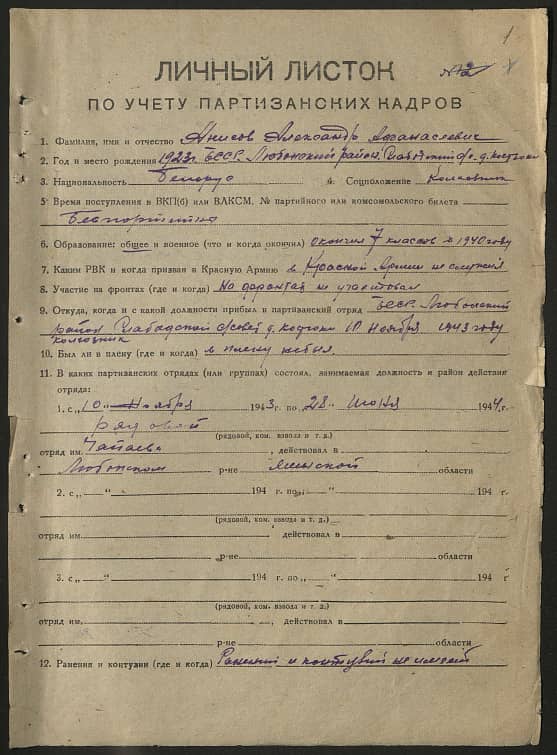 1
№ 12
ЛИЧНЫЙ ЛИСТОК
ПО УЧЕТУ ПАРТИЗАНСКИХ КАДРОВ
1. Фамилия, имя и отчество Анисов Александр Афанасиевич
2. Год и место рождения 1923 г. БССР. Любонский район
3. Национальность Белорус 4. Соцположение Колховник
5. Время поступления в ВКП(б) или ВЛКСМ, № партийного или комсомольского билета
Безпортийна
6. Образование: общее и военное (что и когда окончил) окончил 7 классов в 1940 году
7. Каким РВК и когда призван в Красную Армию в Красной Армии не служил
8. Участие на фронтах (где и когда) На фронтах не участвовал
9. Откуда, когда и с какой должности прибыл в партизанский отряд БССР. Любонский
район д. 10 ноября 1943 году
колхозник
10. Был ли в плену (где и когда) в плену небыл.
11. В каких партизанских отрядах (или группах) состоял, занимаемая должность и район действия
отряда:
1. с „10“ Ноября 1943 г. по 28 Июня 1944 г.
рядовой
(рядовой, ком. взвода и т. д.)
отряд им. Чапаева, действовал в
Любонском р-не Минской области
2. с „ “ 194 г. по „ “ 194 г.
(рядовой, ком. взвода и т. д.)
отряд им. действовал в
р-не области
3. с „ “ 194 г. по „ “ 194 г
(рядовой, ком. взвода и т. д.)
отряд им. , действовал в
р-не области
12. Ранения и контузии (где и когда) Ранений и контузий не имеет